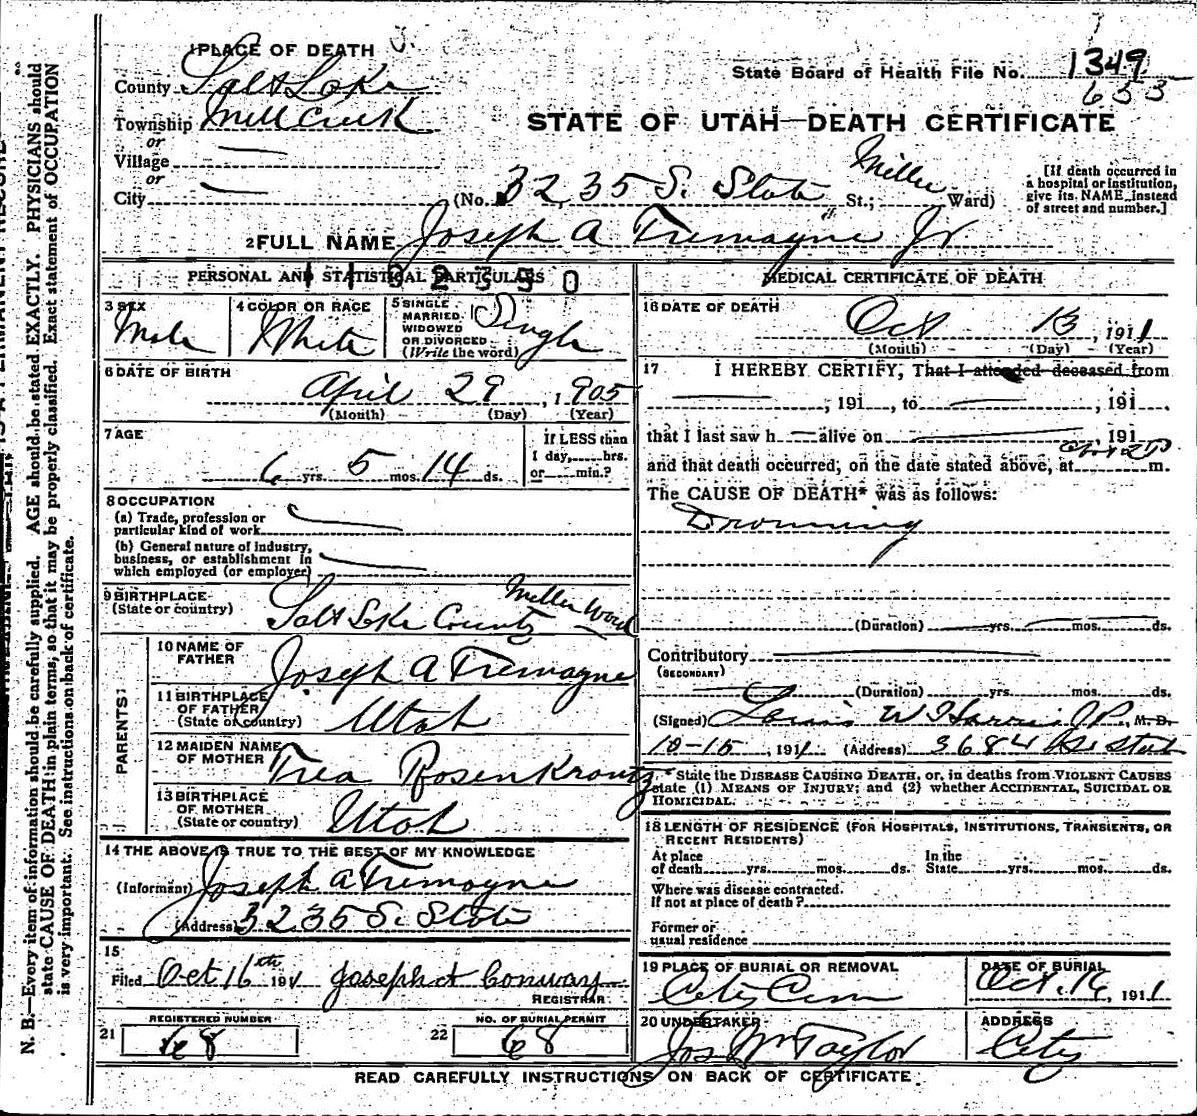 1 PLACE OF DEATH
County Salt Lake
Township Mill Creek
or
Village
or
City
State Board of Health File No. 1349
653
STATE OF UTAH—DEATH CERTIFICATE
(No. 3235 S. State St.; Miller Ward)
[If death occurred in
a hospital or institution,
give its NAME instead
of street and number.]
2 FULL NAME Joseph A Tremayne Jr
PERSONAL AND STATISTICAL PARTICULARS
3 SEX
Male
4 COLOR OR RACE
White
5 SINGLE
MARRIED,
WIDOWED
OR DIVORCED
(Write the word)
Single
6 DATE OF BIRTH
April 29, 1905
(Month) (Day) (Year)
7 AGE
6 yrs. 5 mos. 14 ds.
If LESS than
1 day,......hrs.
or......min.?
8 OCCUPATION
(a) Trade, profession or
particular kind of work
(b) General nature of industry,
business, or establishment in
which employed (or employer)
9 BIRTHPLACE
(State or country)
Salt Lake County Miller Ward
PARENTS:
10 NAME OF
FATHER
Joseph A Tremayne
11 BIRTHPLACE
OF FATHER
(State or country)
Utah
12 MAIDEN NAME
OF MOTHER
Trea Rosenkrantz
13 BIRTHPLACE
OF MOTHER
(State or country)
Utah
14 THE ABOVE IS TRUE TO THE BEST OF MY KNOWLEDGE
(Informant) Joseph A Tremayne
(Address) 3235 S. State
15
Filed Oct 16th 191 Joseph H Conway
REGISTRAR
REGISTERED NUMBER
21 68
NO. OF BURIAL PERMIT
22 68
MEDICAL CERTIFICATE OF DEATH
16 DATE OF DEATH
Oct 13, 1911
(Month) (Day) (Year)
17 I HEREBY CERTIFY, That I attended deceased from
, 191 , to , 191 .
that I last saw h alive on , 191
and that death occurred, on the date stated above, at m.
The CAUSE OF DEATH* was as follows:
Drowning
(Duration) yrs. mos. ds.
Contributory
(SECONDARY)
(Duration) yrs. mos. ds.
(Signed) Louis W Harris J.P., M. D.
10-15, 1911 (Address) 3684 So. State
* State the DISEASE CAUSING DEATH, or, in deaths from VIOLENT CAUSES
state (1) MEANS OF INJURY; and (2) whether ACCIDENTAL, SUICIDAL OR
HOMICIDAL.
18 LENGTH OF RESIDENCE (FOR HOSPITALS, INSTITUTIONS, TRANSIENTS, OR
RECENT RESIDENTS)
At place
of death yrs. mos. ds.
In the
State yrs. mos. ds.
Where was disease contracted.
If not at place of death?
Former or
usual residence
19 PLACE OF BURIAL OR REMOVAL
City Cem
DATE OF BURIAL
Oct. 16, 1911
20 UNDERTAKER
Jos Wm Taylor
ADDRESS
City
READ CAREFULLY INSTRUCTIONS ON BACK OF CERTIFICATE
N. B.—Every item of information should be carefully supplied. AGE should be stated EXACTLY. PHYSICIANS should
state CAUSE OF DEATH in plain terms, so that it may be properly classified. Exact statement of OCCUPATION
is very important. See instructions on back of certificate.